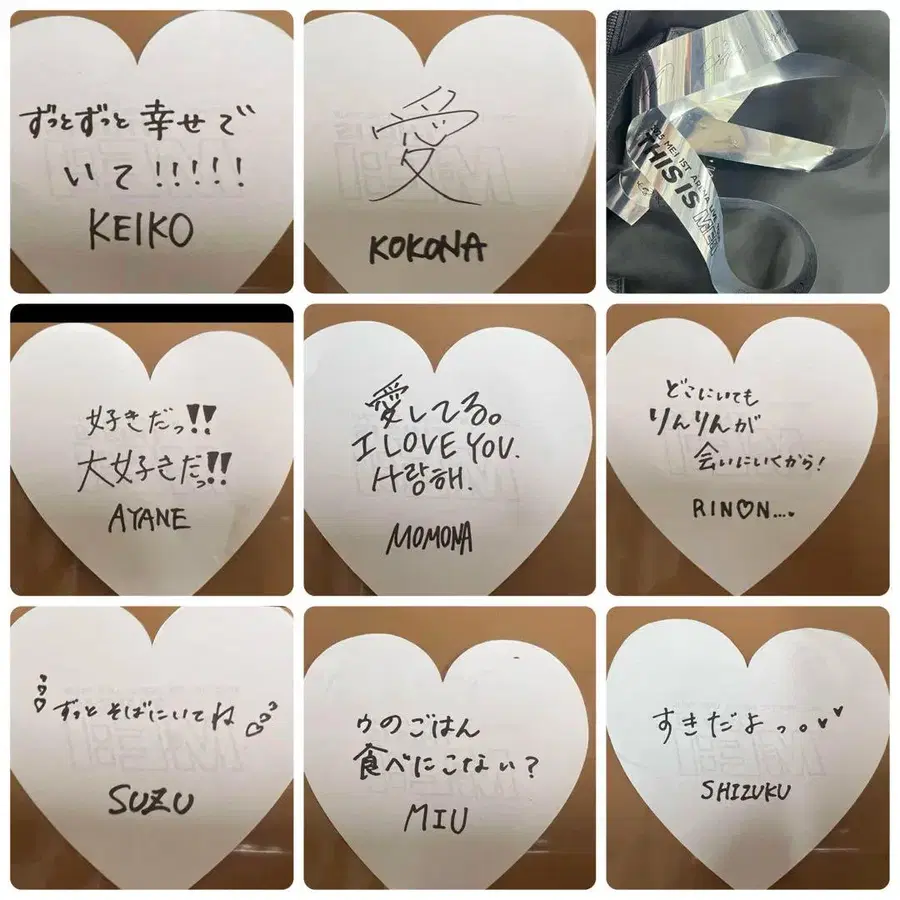 ずっとずっと幸せで
いて!!!!!
KEIKO
愛
KOKONA
2025 ME:I 1ST ARENA LIVE
THIS IS
ME:I
好きだっ!!
大好きだっ!!
AYANE
愛してる。
I LOVE YOU.
사랑해.
MOMONA
どこにいても
りんりんが
会いにいくから!
RIN♡N....
ずっとそばにいてね
SUZU
ゥのごはん
食べにこない?
MIU
すきだよっ。
SHIZUKU